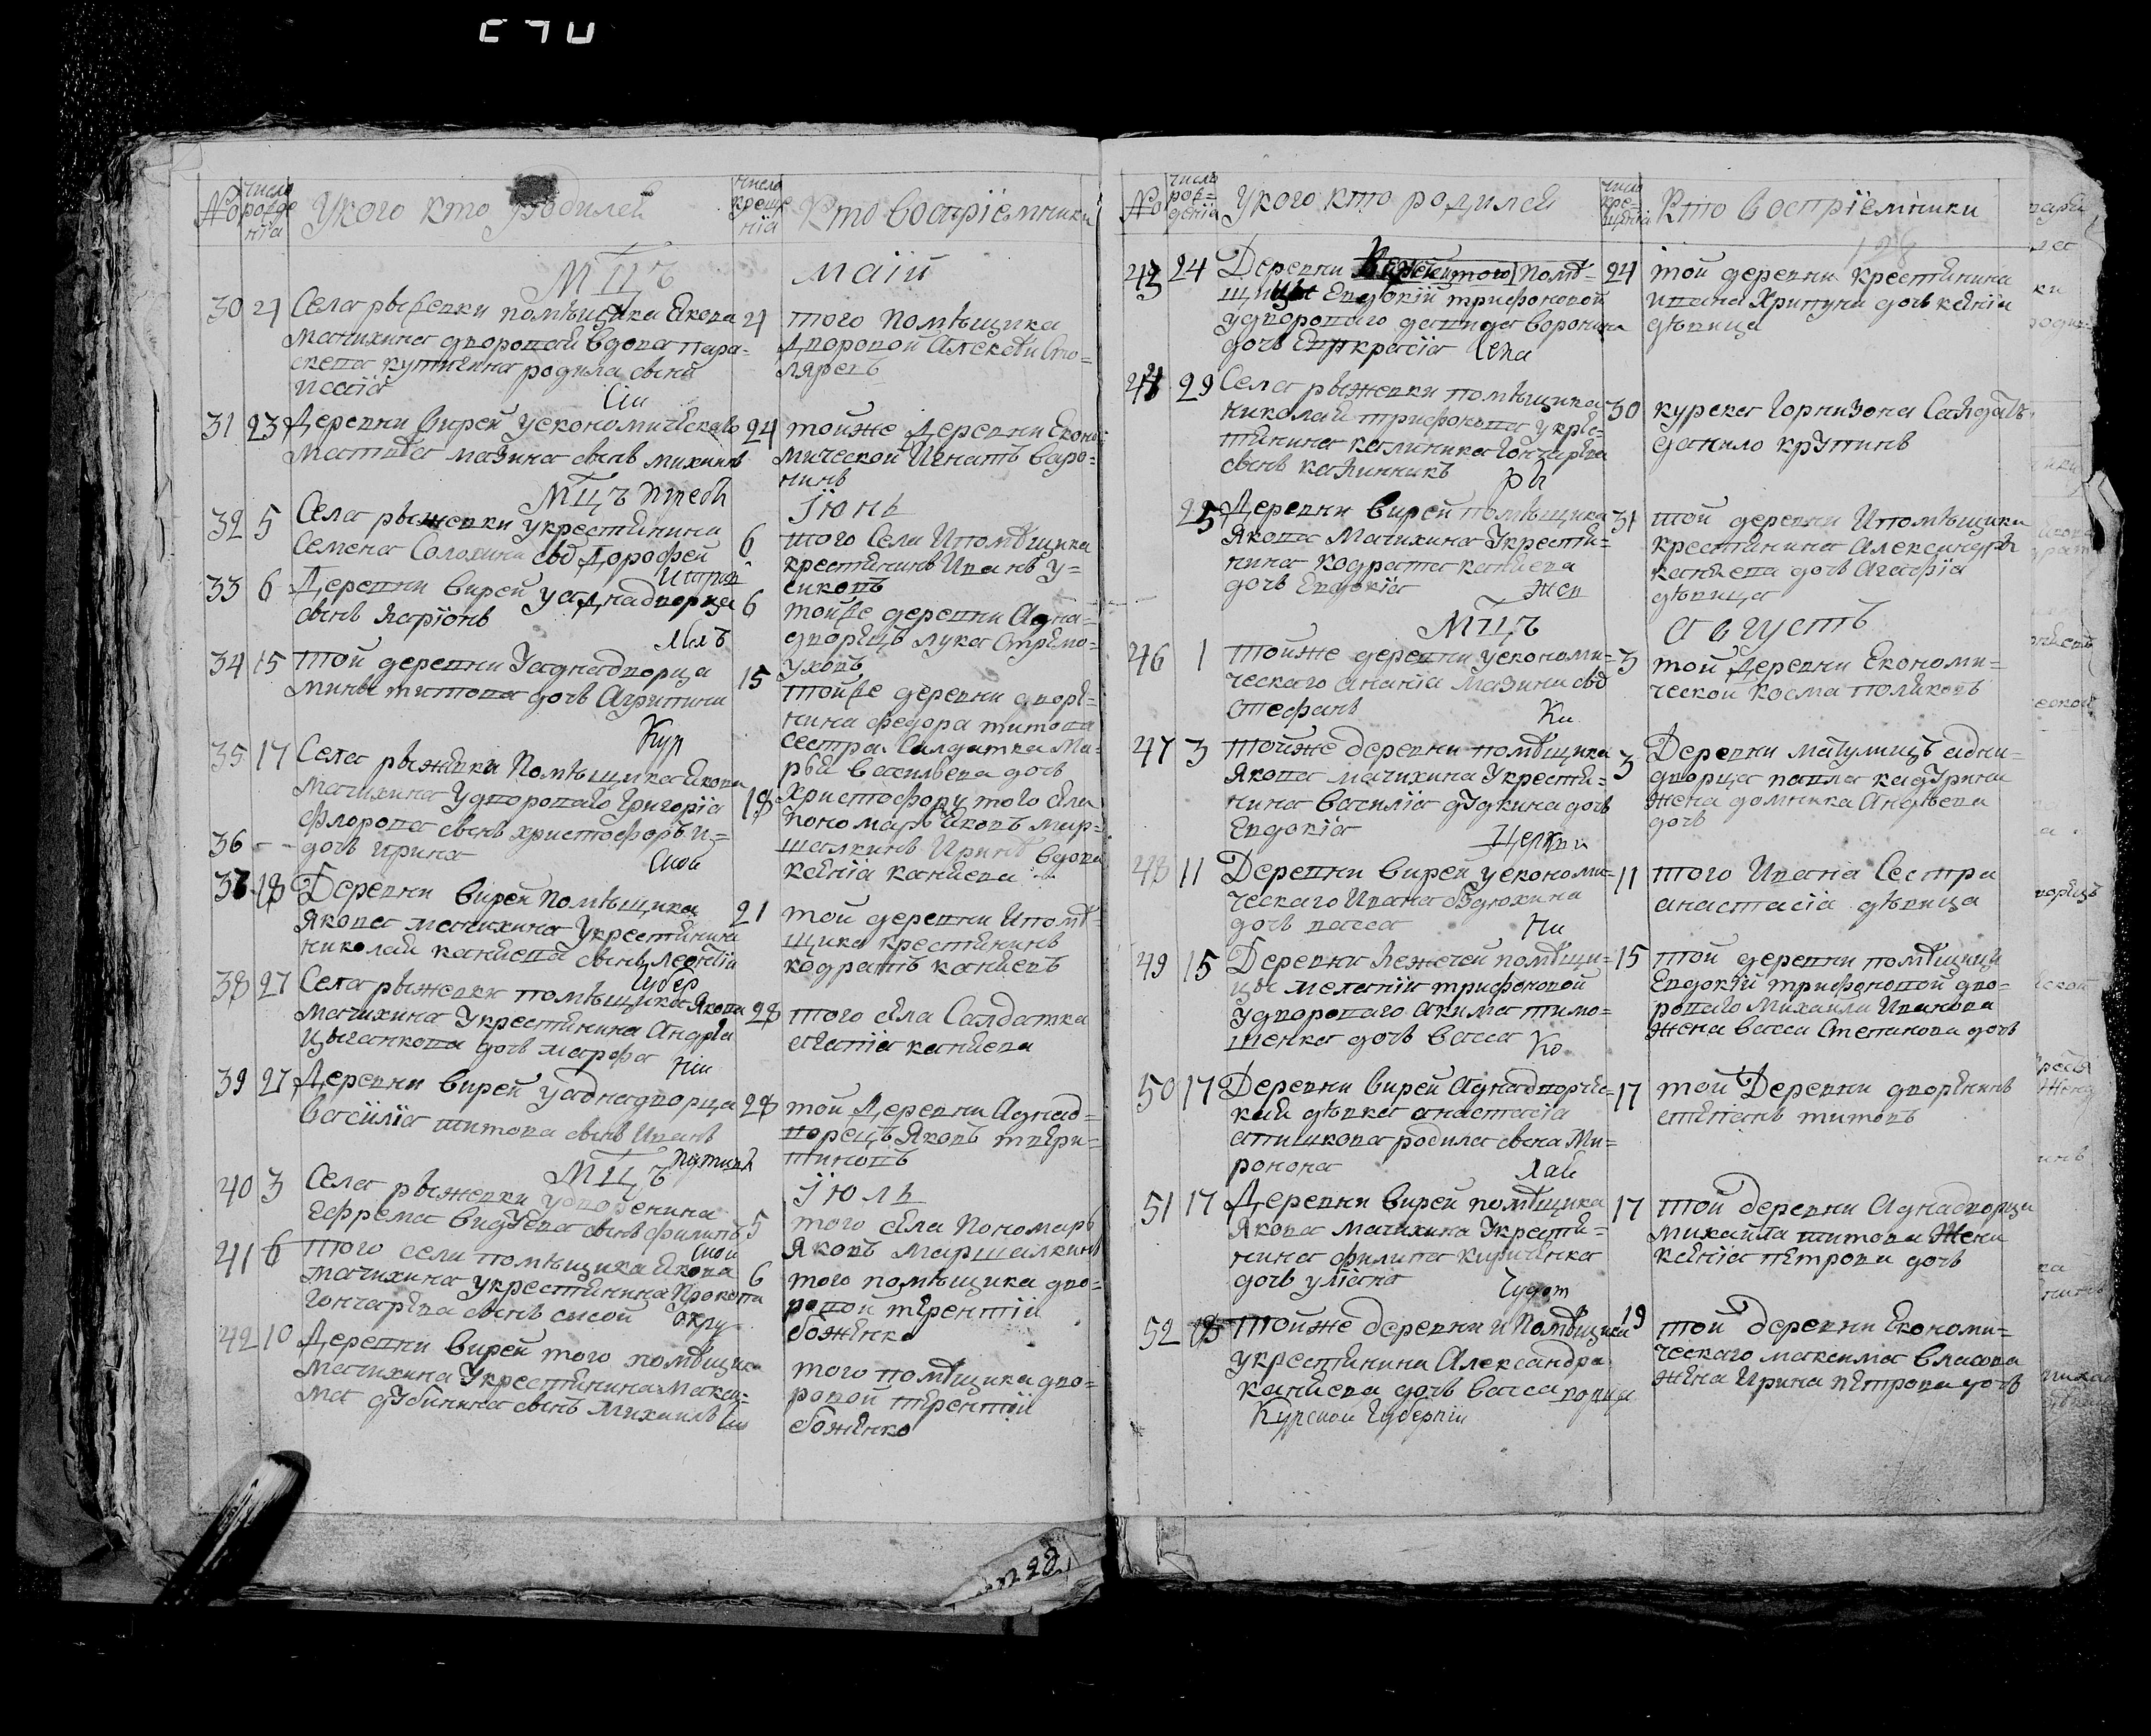 №
число рожде нїа
У кого кто родилсѧ
число креще нїа
Кто воспрїемники
Мцъ
маїи
30 21 Села рыжевки помѣщика Якова
мачихина дворовая вдова пара=
скева родила сына
исаїа
21 того помѣщика
дворовой Алексѣй Сто=
ляревъ
31 23 Деревни вирей у економическаго
матвѣа мазина сынъ
24 тойже деревни Еконо
мической Игнатъ Варо=
нинъ
Мцъ
Їюнь
32 5 Села рыжевки у крестянина
Семена Солохина сынъ Дорофей
6 того Села и помѣщика
крестянинъ Иванъ
33 6 Деревни вирей у аднадворца
сынъ ларїонъ
6 тойже деревни Адна=
дворецъ лука
34 15 той деревни У аднадворца
мины титова дочь Агрипина
15 тойже деревни дворя=
нина федора титова
сестра Салдатка Ма=
рѳа васильева дочь
35 17 Села рыжевки Помѣщика Якова
мачихина У двороваго Григорїа
флорова сынъ христофоръ и=
36 - - дочь ирина
18 Христофору того села
Пономарь Яковъ мар=
шалкинъ Иринѣ вдова
ксенїа канїева
37 18 Деревни вирей Помѣщика
Якова мачихина У крестянина
николая канїева сынъ леонтїи
21 той деревни и помѣ=
щика крестянинъ
кодратъ канїевъ
38 27 Села рыжевки помѣщика Якова
мачихина У крестянина Андреа
цыганкова дочь марфа
28 того села Салдатка
агапїа канїева
39 27 Деревни вирей у аднадворца
василїа титова сынъ Иванъ
28 той деревни Аднад=
ворецъ Яковъ
Мцъ
Їюль
40 3 Села рыжевки у дворенина
Ефрема сынъ филипъ
5 того села Пономарь
Яковъ Маршалкинъ
41 6 того села помѣщика Якова
мачихина у крестянина Прокопа
гончарева сынъ сысой
6 того помѣщика дво=
ровой терентїи
боженко
42 10 Деревни вирей того помѣщика
мачихина У крестянина макси=
ма сынъ Михаилъ
того помѣщика дво=
ровой терентїи
боженко
№
число рож= денїа
У кого кто родилсѧ
число кре= щенїа
Кто воспрїемники
128
43 24 Деревни помѣ=
щицы Евдокїи трифоновой
у двороваго давида воронина
дочь Евпраксїа
24 той деревни крестянина
ивана Хрипуна дочь ксенїа
дѣвица
44 29 Села рыжевки помѣщика
николая трифонова у крес=
тянина калиника гончарева
сынъ калинникъ
30 курска горнизона Салдатъ
данило крупинъ
25 Деревни вирей помѣщика
Якова Мачихина У крестя=
нина кодрата канїева
дочь Евдокїа
31 той деревни И помѣщика
крестянина Александра
канїева дочь агафїа
дѣвица
Мцъ
августъ
46 1 тойже деревни у економи=
ческаго ананїа мазина сынъ
стефанъ
3 той деревни Економи=
ческой косма поляковъ
47 3 тойже деревни помѣщика
Якова мачихина У крестя=
нина василїа дудкина дочь
Евдокїа
3 Деревни адна=
дворца павла
жена домника
дочь
48 11 Деревни вирей у економи=
ческаго Ивана
дочь васса
11 того Ивана Сестра
анастасїа дѣвица
49 15 Деревни помѣщи=
цы меланїи трифоновой
у двороваго акима тимо=
шенка дочь васса
15 той деревни помѣщицы
Евдокїи трифоновой дво=
роваго Михаила Иванова
жена васса Степанова дочь
50 17 Деревни вирей Аднадворче=
кая дѣвка анастасїа
родила сына Ми=
ронона
17 той Деревни дворянинъ
степанъ титовъ
51 17 Деревни вирей помѣщика
Якова мачихина У крестя=
нина филипа
дочь улїана
17 той деревни Аднадворца
михаила титова жена
ксенїа петрова дочь
52 18 тойже деревни и помѣщика
у крестянина Александра
канїева дочь васса
19 той деревни Економи=
ческаго максима власова
жена Ирина петрова дочь
Курской Губернїи